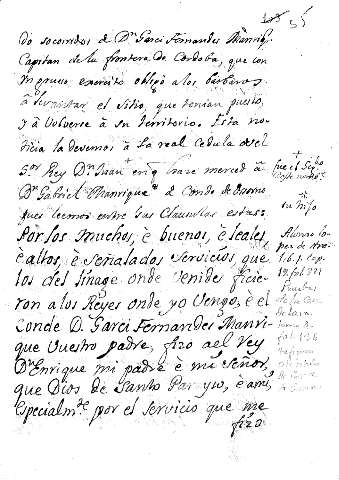 55
do socorridos de Dn Garci Fernandes Manriq.
Capitan de la frontera de Cordoba, que con
un grueso exercito obligó a los barbaros
à levantar el sitio, que tenian puesto,
y à volverse a su territorio. Esta no-
ticia la devemos à la real cedula del
Sor Rey Dn Juan + en q hace merced à
Dn Gabriel Manrique de Conde de Osorno
pues leemos entre sus Clausulas estas:
Por los muchos, è buenos, è leales,
è altos, è señalados servicios, que
los del linage onde venides ficie-
ron a los Reyes onde yo vengo, è el
Conde D. Garci Fernandes Manri-
que vuestro padre, fizo a el Rey
Dn Enrique mi padre è mi Señor,
que Dios de Santo Parayso, è a mi,
especialmte por el servicio que me
fizo
+
fue el Segdo
+
su hijo
Alonso Lo-
pez de Aro
l. 6.
fol. 321
Pruebas
de la Casa
de Lara